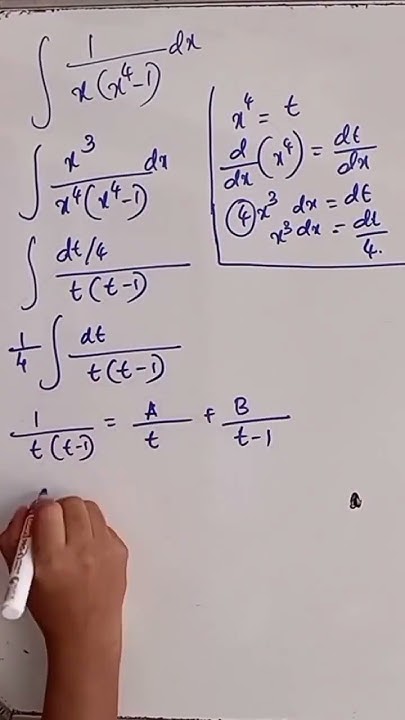 ∫ 1/x(x⁴-1) dx
∫ x³/x⁴(x⁴-1) dx
∫ dt/4 / t(t-1)
1/4 ∫ dt/t(t-1)
1/t(t-1) = A/t + B/t-1
x⁴ = t
d/dx (x⁴) = dt/dx
4x³ dx = dt
x³dx = dt/4.